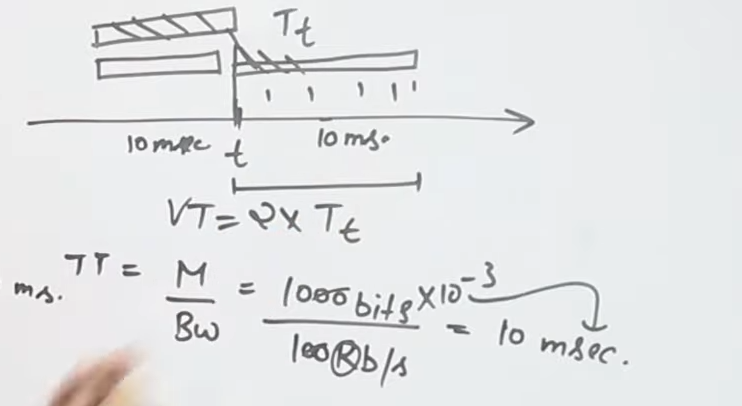 Tt
10 msec t 10 ms.
VT = 2 x Tt
ms. TT = M / Bw = 1000 bits x 10^-3 / 100 Kb/s = 10 msec.